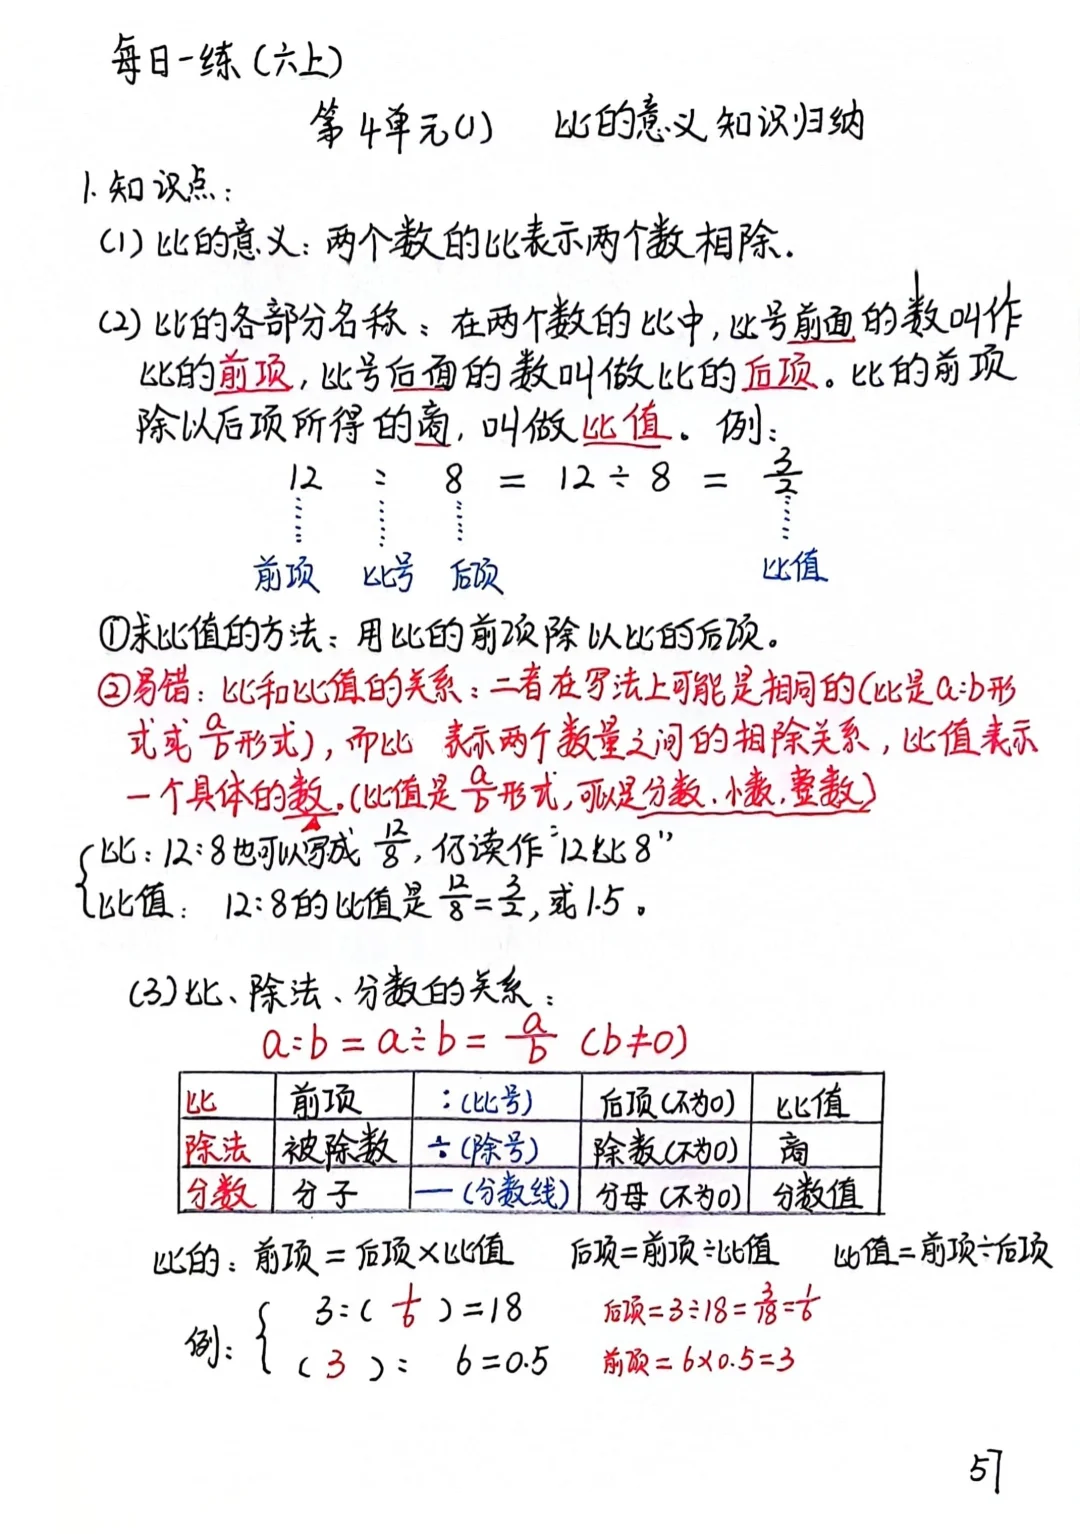 每日一练(六上)
第4单元(1) 比的意义知识归纳
1.知识点:
(1)比的意义:两个数的比表示两个数相除.
(2)比的各部分名称:在两个数的比中,比号前面的数叫作
比的前项,比号后面的数叫做比的后项。比的前项
除以后项所得的商,叫做比值。例:
12 : 8 = 12÷8 = 3/2
前项 比号 后项 比值
①求比值的方法:用比的前项除以比的后项。
②易错:比和比值的关系:二者在写法上可能是相同的(比是a:b形
式或a/b形式),而比 表示两个数量之间的相除关系,比值表示
一个具体的数.(比值是a/b形式,可以是分数.小数.整数)
比:12:8也可以写成12/8,仍读作"12比8"
比值: 12:8的比值是12/8=3/2,或1.5。
(3)比、除法、分数的关系:
a:b=a÷b=a/b (b≠0)
比 前项 :(比号) 后项(不为0) 比值
除法 被除数 ÷(除号) 除数(不为0) 商
分数 分子 —(分数线) 分母(不为0) 分数值
比的:前项=后项×比值 后项=前项÷比值 比值=前项÷后项
例: 3:(1/6)=18 后项=3÷18=3/18=1/6
(3): 6=0.5 前项=6×0.5=3
57